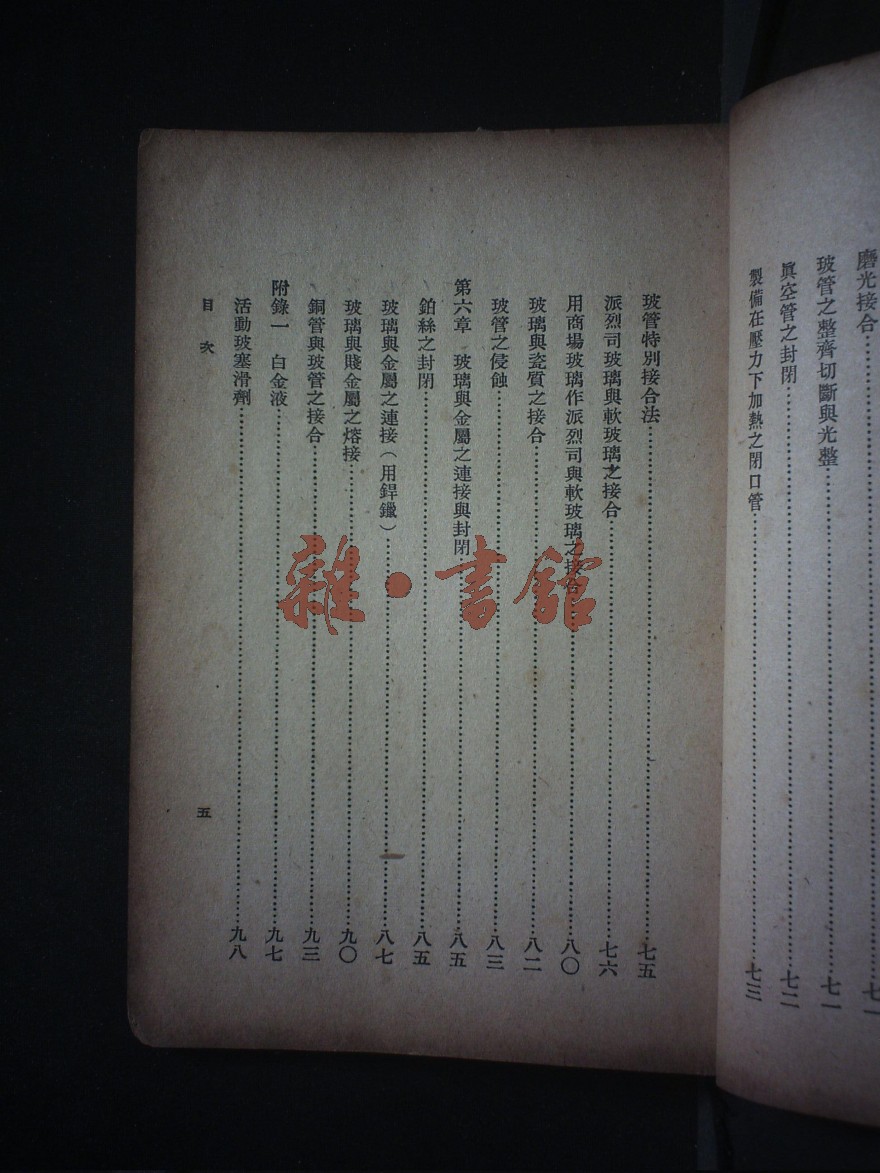 磨光接合……七一
玻管之整齊切斷與光整……七一
眞空管之封閉……七二
製備在壓力下加熱之閉口管……七三
玻管特別接合法……七五
派烈司玻璃與軟玻璃之接合……七六
用商場玻璃作派烈司與軟玻璃之接合……八〇
玻璃與瓷質之接合……八二
玻管之侵蝕……八三
第六章 玻璃與金屬之連接與封閉……八五
鉑絲之封閉……八五
玻璃與金屬之連接（用銲鑞）……八七
玻璃與賤金屬之熔接……九〇
銅管與玻管之接合……九三
附錄一 白金液……九七
活動玻塞滑劑……九八
目次
五
雜·書館